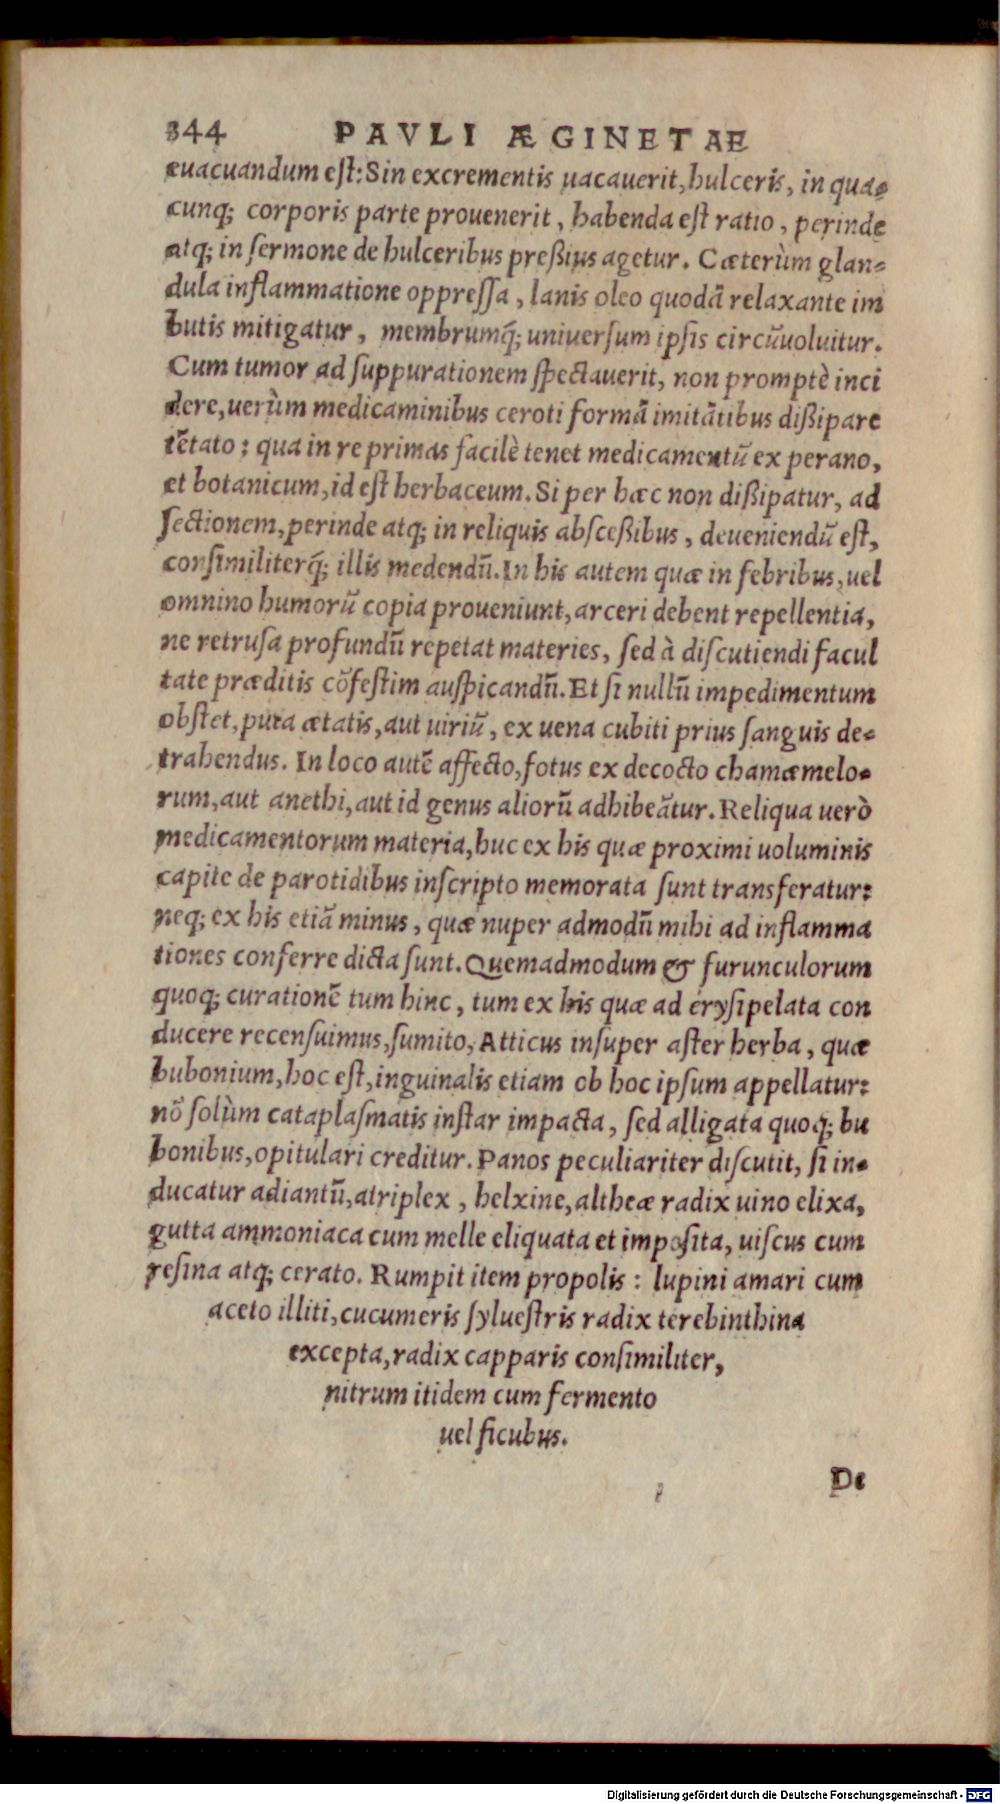 344 PAVLI ÆGINETAE
euacuandum est: Sin excrementis uacauerit, hulceris, in qua-
cunq; corporis parte prouenerit, habenda est ratio, perinde
atq; in sermone de hulceribus preßius agetur. Cæterùm glan-
dula inflammatione oppressa, lanis oleo quodã relaxante im
butis mitigatur, membrumq́; uniuersum ipsis circũuoluitur.
Cum tumor ad suppurationem spectauerit, non promptè inci
dere, uerùm medicaminibus ceroti formã imitãtibus dißipare
tẽtato: qua in re primas facilè tenet medicamentũ ex perano,
et botanicum, id est herbaceum. Si per hæc non dißipatur, ad
sectionem, perinde atq; in reliquis absceßibus, deueniendũ est,
consimiliterq́; illis medendũ. In his autem quæ in febribus, uel
omnino humorũ copia proueniunt, arceri debent repellentia,
ne retrusa profundũ repetat materies, sed à discutiendi facul
tate præditis cõfestim auspicandũ. Et si nullũ impedimentum
obstet, puta ætatis, aut uiriũ, ex uena cubiti prius sanguis de-
trahendus. In loco autẽ affecto, fotus ex decocto chamæmelo-
rum, aut anethi, aut id genus aliorũ adhibeãtur. Reliqua uerò
medicamentorum materia, huc ex his quæ proximi uoluminis
capite de parotidibus inscripto memorata sunt transferatur:
neq; ex his etiã minus, quæ nuper admodũ mihi ad inflamma
tiones conferre dicta sunt. Quemadmodum & furunculorum
quoq; curationẽ tum hinc, tum ex his quæ ad erysipelata con
ducere recensuimus, sumito, Atticus insuper aster herba, quæ
bubonium, hoc est, inguinalis etiam ob hoc ipsum appellatur:
nõ solùm cataplasmatis instar impacta, sed alligata quoq; bu
bonibus, opitulari creditur. Panos peculiariter discutit, si in-
ducatur adiantũ, atriplex, helxine, altheæ radix uino elixa,
gutta ammoniaca cum melle eliquata et imposita, uiscus cum
resina atq; cerato. Rumpit item propolis: lupini amari cum
aceto illiti, cucumeris syluestris radix terebinthina
excepta, radix capparis consimiliter,
nitrum itidem cum fermento
uel ficubus.
De
Digitalisierung gefördert durch die Deutsche Forschungsgemeinschaft - DFG